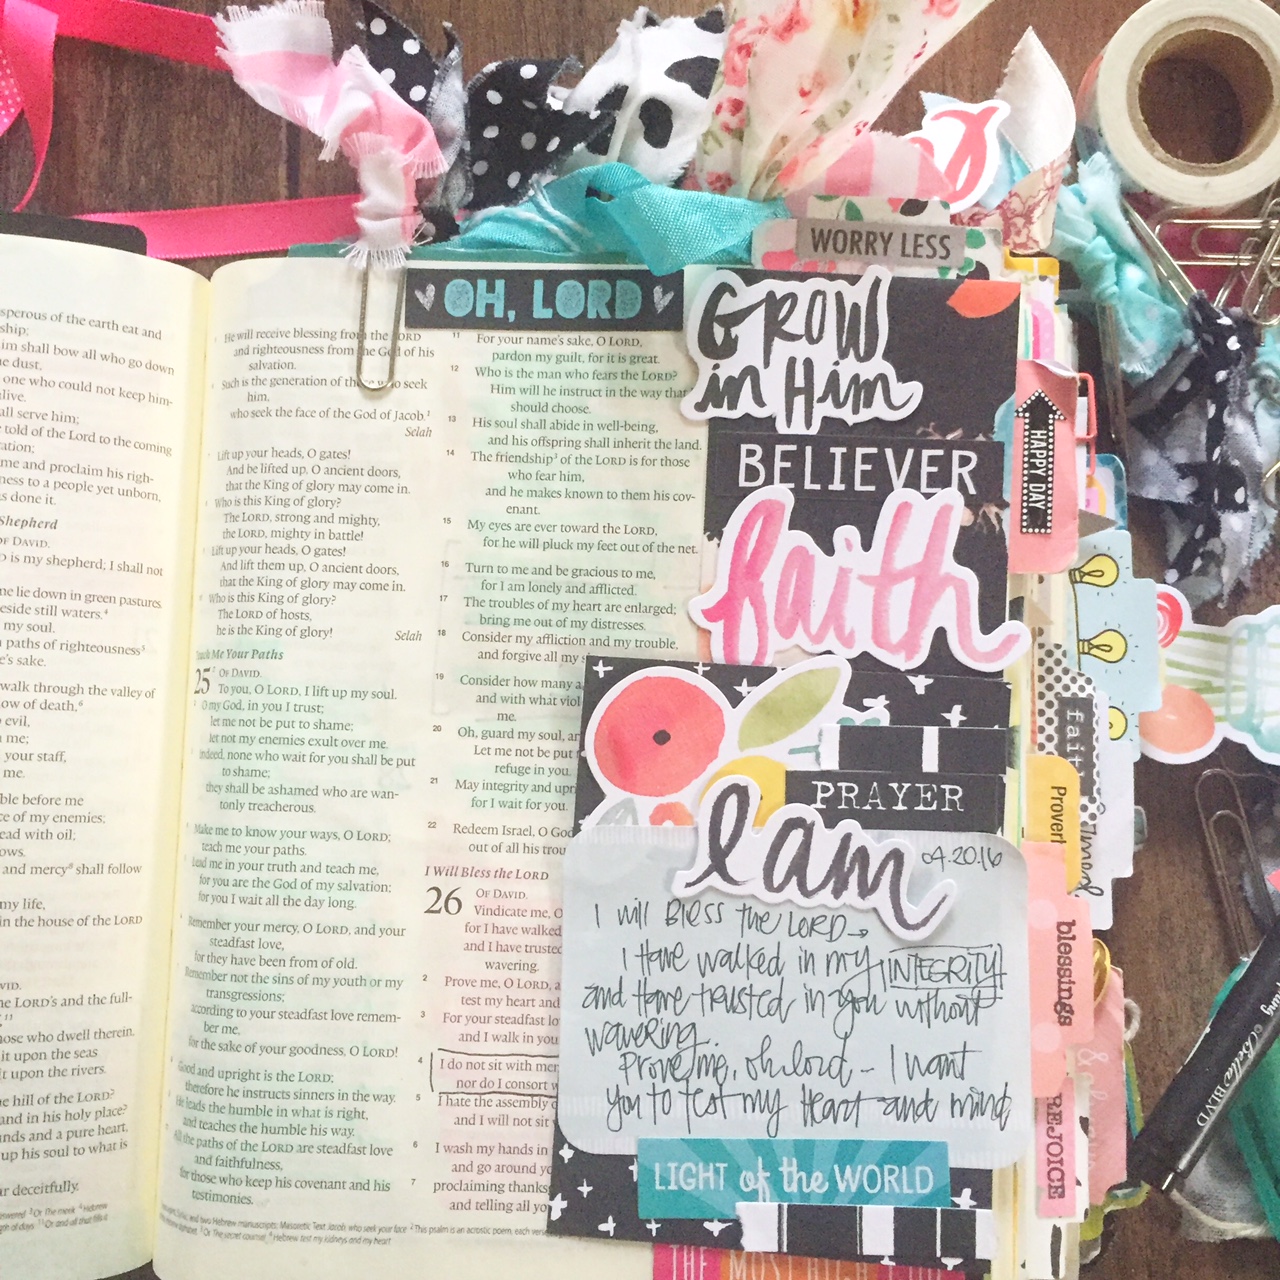 sperous of the earth eat and
ship;
im shall bow all who go down
e dust,
one who could not keep him-
alive.
all serve him;
told of the Lord to the coming
ation;
me and proclaim his righ-
ness to a people yet unborn,
s done it.
Shepherd
OF DAVID.
is my shepherd; I shall not
me lie down in green pastures.
eside still waters.⁴
my soul.
paths of righteousness⁵
e's sake.
walk through the valley of
ow of death,⁶
evil,
me;
your staff,
me.
ble before me
ce of my enemies;
ead with oil;
ows.
and mercy⁸ shall follow
my life,
in the house of the LORD
VID.
he LORD's and the full-
hose who dwell therein,
it upon the seas
t upon the rivers.
he hill of the LORD?
and in his holy place?
nds and a pure heart,
up his soul to what is
ar deceitfully.
He will receive blessing from the LORD
and righteousness from the God of his
salvation.
Such is the generation of those who seek
him,
who seek the face of the God of Jacob.¹
Selah
Lift up your heads, O gates!
And be lifted up, O ancient doors,
that the King of glory may come in.
Who is this King of glory?
The LORD, strong and mighty,
the LORD, mighty in battle!
Lift up your heads, O gates!
And lift them up, O ancient doors,
that the King of glory may come in.
Who is this King of glory?
The LORD of hosts,
he is the King of glory! Selah
Teach Me Your Paths
25 OF DAVID.
To you, O LORD, I lift up my soul.
O my God, in you I trust;
let me not be put to shame;
let not my enemies exult over me.
Indeed, none who wait for you shall be put
to shame;
they shall be ashamed who are wan-
tonly treacherous.
Make me to know your ways, O LORD;
teach me your paths.
Lead me in your truth and teach me,
for you are the God of my salvation;
for you I wait all the day long.
Remember your mercy, O LORD, and your
steadfast love,
for they have been from of old.
Remember not the sins of my youth or my
transgressions;
according to your steadfast love remem-
ber me,
for the sake of your goodness, O LORD!
Good and upright is the LORD;
therefore he instructs sinners in the way.
He leads the humble in what is right,
and teaches the humble his way.
All the paths of the LORD are steadfast love
and faithfulness,
for those who keep his covenant and his
testimonies.
OH, LORD
11 For your name's sake, O LORD,
pardon my guilt, for it is great.
12 Who is the man who fears the LORD?
Him will he instruct in the way that
should choose.
13 His soul shall abide in well-being,
and his offspring shall inherit the land.
14 The friendship¹ of the LORD is for those
who fear him,
and he makes known to them his cov-
enant.
15 My eyes are ever toward the LORD,
for he will pluck my feet out of the net.
16 Turn to me and be gracious to me,
for I am lonely and afflicted.
17 The troubles of my heart are enlarged;
bring me out of my distresses.
18 Consider my affliction and my trouble,
and forgive all my s
19 Consider how many a
and with what viol
me.
20 Oh, guard my soul, an
Let me not be put
refuge in you.
21 May integrity and upri
for I wait for you.
22 Redeem Israel, O God
out of all his trou
I Will Bless the LORD
26 OF DAVID.
Vindicate me, O
for I have walked
and I have trusted
wavering.
2 Prove me, O LORD, a
test my heart and
3 For your steadfast lo
and I walk in you
4 I do not sit with men
nor do I consort w
5 I hate the assembly o
and I will not sit
6 I wash my hands in
and go around yo
7 proclaiming thanks
and telling all yo
WORRY LESS
GROW
in Him
BELIEVER
faith
PRAYER
I am
04.20.16
I will BLESS the LORD→
I Have walked in my INTEGRITY
and Have trusted in you without
wavering.
Prove me, oh lord – I want
you to test my Heart and mind
LIGHT of the WORLD
THE MOST HIGH
HAPPY DAY
faith
Proverb
blessings
REJOICE
Bella BLVD